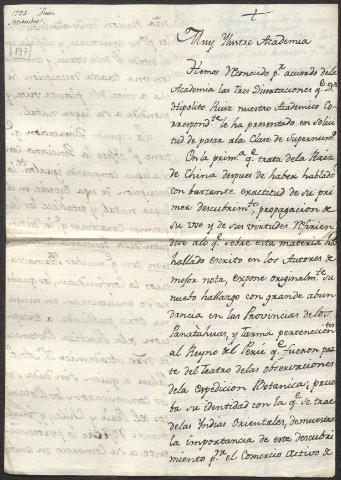 1794 Ruiz
Septiembre.
(197)
+
Muy Iltre Academia
Hemos reconocido pr. acuerdo de la
Academia las tres Disertaciones qe. Dn.
Hipolito Ruiz nuestro Academico Co-
rrespondte. le ha presentado en solici-
tud de pasar ala Clase de Supernumo.
Con la prima. qe. trata dela Raiz
de China despues de haber hablado
con bastante exactitud de su pri-
mer descubrimto., propagacion de
su uso y de sus vertudes refirien-
dose alo qe. sobre esta materia ha
hallado escrito en los Autores de
mejor nota, expone originalmte. su
nuebo hallazgo con grande abun-
dancia en las Provincias de los
Panatahuas, y Tarma pertenecientes
al Reyno del Perú qe. fueron par-
te del Teatro de las observaciones
de la Expedicion Botanica; prue-
ba su identidad con la qe. se trae
delas Indias Orientales, demuestra
la importancia de este descubri-
miento pa. el Comercio Activo de